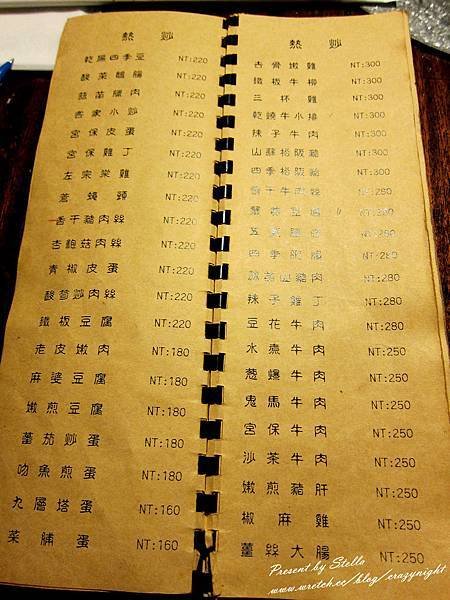 熱炒
乾扁四季豆 NT:220
酸菜麵腸 NT:220
蒜苗臘肉 NT:220
客家小炒 NT:220
宮保皮蛋 NT:220
宮保雞丁 NT:220
左宗棠雞 NT:220
蒼蠅頭 NT:220
香干豬肉絲 NT:220
杏鮑菇肉絲 NT:220
青椒皮蛋 NT:220
酸菜炒肉絲 NT:220
鐵板豆腐 NT:220
老皮嫩肉 NT:180
麻婆豆腐 NT:180
嫩煎豆腐 NT:180
蕃茄炒蛋 NT:180
吻魚煎蛋 NT:180
九層塔蛋 NT:160
菜脯蛋 NT:160
熱炒
去骨嫩雞 NT:300
鐵板牛柳 NT:300
三杯雞 NT:300
乾燒牛小排 NT:300
辣子牛肉 NT:300
山蘇松阪豬 NT:300
四季松阪豬 NT:300
香干牛肉絲 NT:280
豆腸
五更腸 NT:280
四季肥腸 NT:280
蒜苗山豬肉 NT:280
辣子雞丁 NT:280
豆花牛肉 NT:280
水煮牛肉 NT:250
蔥爆牛肉 NT:250
鬼馬牛肉 NT:250
宮保牛肉 NT:250
沙茶牛肉 NT:250
嫩煎豬肝 NT:250
椒麻雞 NT:250
薑絲大腸 NT:250
Present by Stella
www.wretch.cc/blog/crazynight